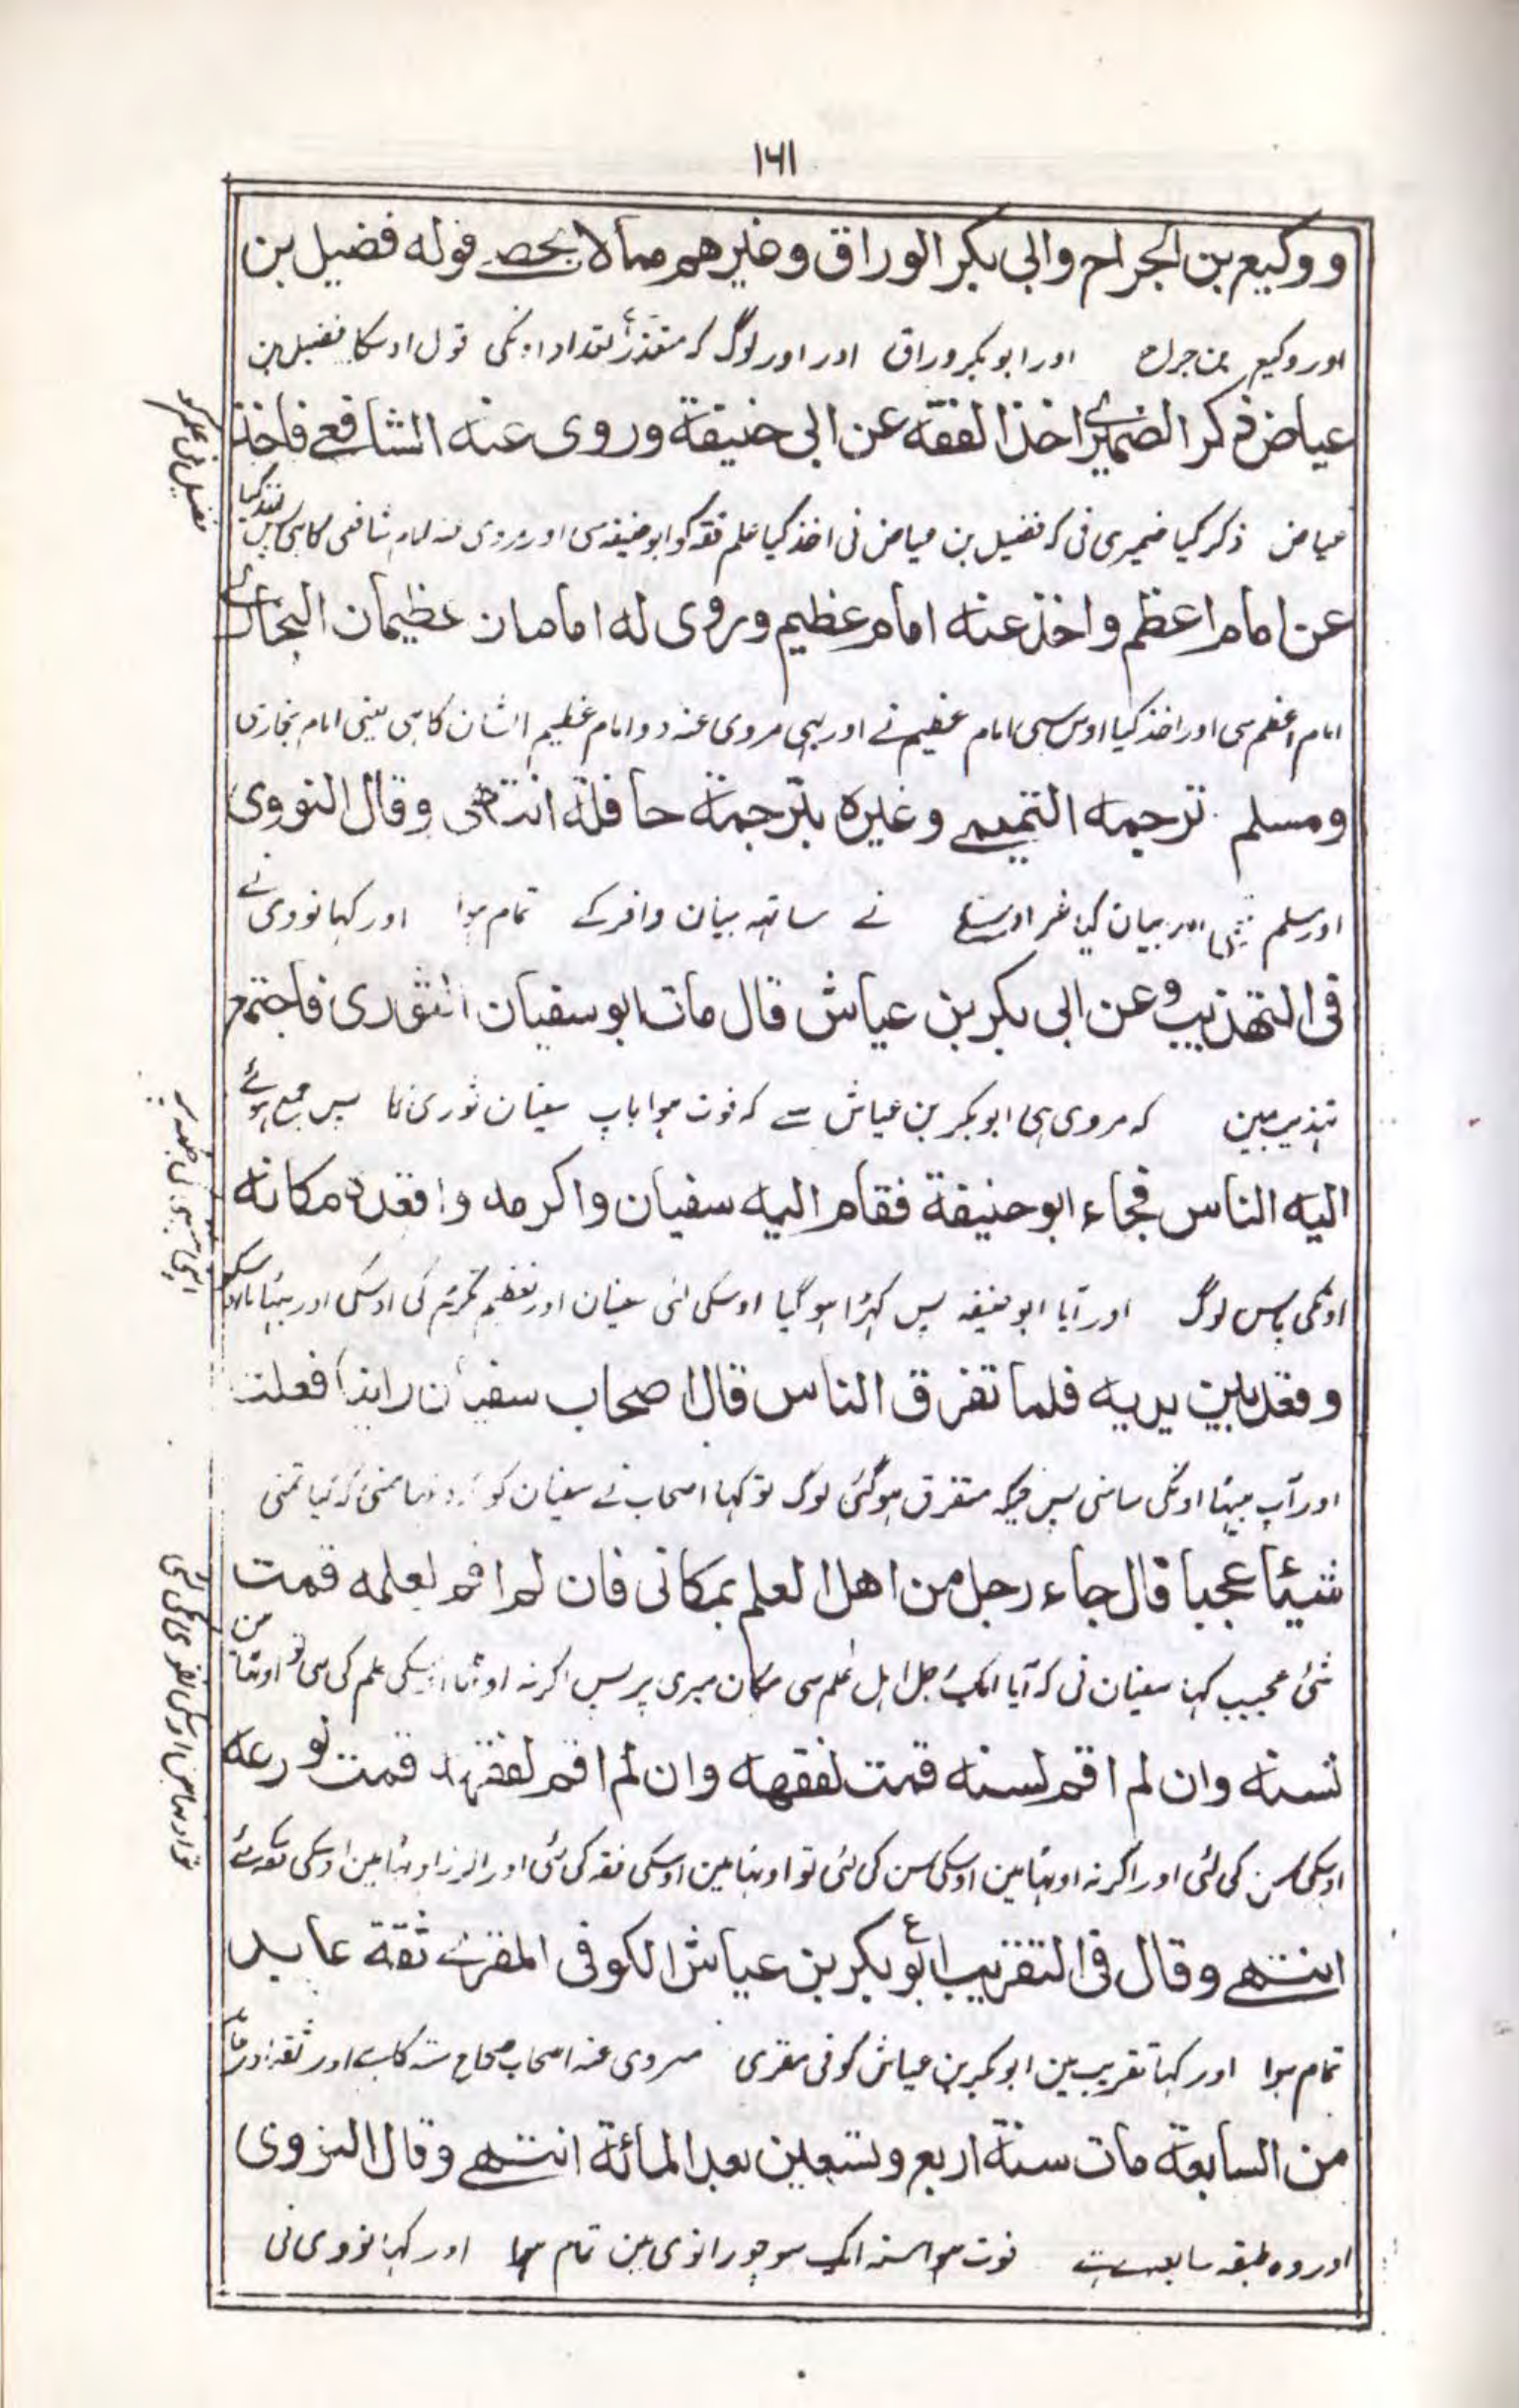 ١٦١
ووكيع بن الجراح وابى بكر الوراق وغيرهم مما لا يحصے قوله فضيل بن
اور وكيع بن جراح اور ابو بكر وراق اور اور لوگ كہ متعذر تعداد اونكى قول اوسكا فضيل بن
عياض ذكر الضميرى اخذ الفقه عن ابى حنيفة وروى عنه الشافعے فاخذ
عياض ذكر كيا ضميرى نى كہ فضيل بن عياض نى اخذ كيا علم فقہ كو ابو حنيفہ سى اور مروى عنہ امام شافعى كا ہى پس اخذ كيا
عن امام اعظم واخذ عنه امام عظيم وروى له امامان عظيمان البخارى
امام اعظم سى اور اخذ كيا اوس سى امام عظيم نے اور يہى مروى عنہ دو امام عظيم الشان كا ہى يعنى امام بخارى
ومسلم ترجمه التميمے وغيره بترجمة حافلة انتهى وقال النووى
اور مسلم اور بيان كيا نے ساتہہ بيان وافر كے تمام ہوا اور كہا نووى نے
فى التهذيب وعن ابى بكر بن عياش قال مات ابو سفيان الثورى فاجتمع
تہذيب مين كہ مروى ہى ابو بكر بن عياش سے كہ فوت ہوا باپ سفيان ثورى كا پس جمع ہوئے
اليه الناس فجاء ابو حنيفة فقام اليه سفيان واكرمه واقعده مكانه
اونكى پاس لوگ اور آيا ابو حنيفہ پس كہڑا ہو گيا اوسكى لئى سفيان اور تعظيم تكريم كى اوسكى اور بہٹايا
وقعد بين يديه فلما تفرق الناس قال اصحاب سفيان رايناك فعلت
اور آپ بيٹہا اونكى سامنى پس جبكہ متفرق ہو گئى لوگ تو كہا اصحاب نے سفيان كو
شيئا عجيبا قال جاء رجل من اهل العلم بمكانى فان لم اقم لعلمه قمت
شئ عجيب كہا سفيان نى كہ آيا ايك رجل اہل علم سى مكان ميرى پر پس اگر نہ اوٹہتا اوسكى علم كى سى تو اوٹہتا مين
لسنه وان لم اقم لسنه قمت لفقهه وان لم اقم لفقهه قمت لورعه
اوسكى سن كى لئى اور اگر نہ اوٹہتا مين اوسكى سن كى لئى تو اوٹہتا مين اوسكى فقہ كى لئى اور اگر نہ اوٹہتا مين اوسكى فقہ كے
انتهے وقال فى التقريب ابو بكر بن عياش الكوفى المقرئ ثقة عابد
تمام ہوا اور كہا تقريب مين ابو بكر بن عياش كوفى مقرى مروى عنہ اصحاب صحاح ستہ كا ہے اور ثقہ اور عابد
من السابعة مات سنة اربع وتسعين بعد المائة انتهے وقال النووى
اور وہ طبقہ سابعہ سے فوت ہوا سنہ ايك سو چورانوى مين تمام ہوا اور كہا نووى نى